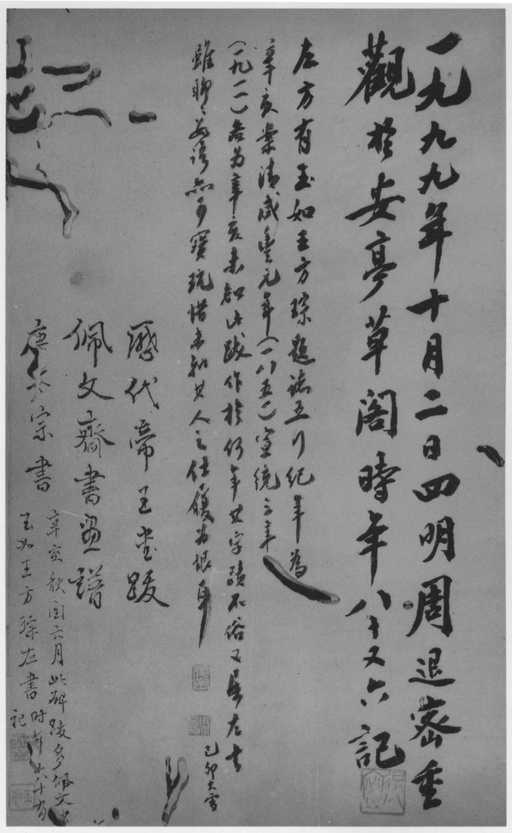 一九九九年十月二日四明周退密重
觀於安亭草閣時年八十又六記
左方有玉如王方琮題識五行紀年為
辛亥案清咸豐元年(一八五一)宣統三年
(一九一一)各為辛亥未知此跋作於何年其字蹟不俗又為左書
雖聊安亦可寶玩惜未知其人之仕履為恨耳
己卯大雪
歷代帝王
佩文齋書畫譜
唐 宗書
辛亥 閏六月此碑跋多佩文
玉如王方琮左書時年八十 記